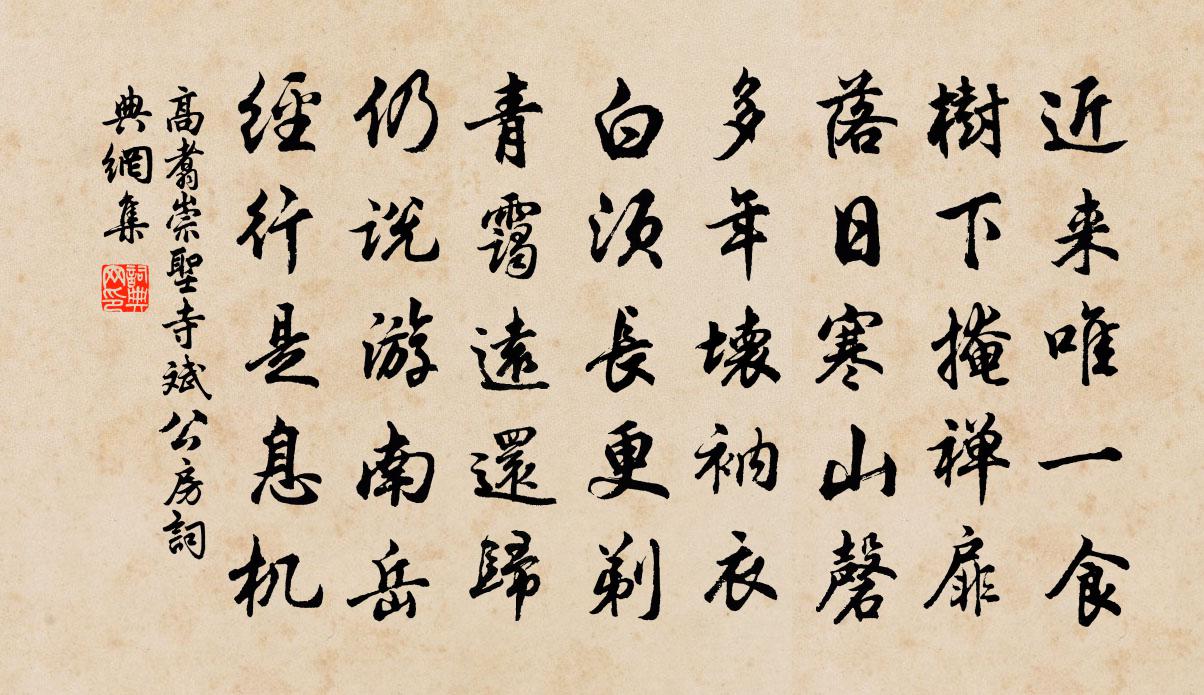 近来唯一食
樹下掩禅扉
落日寒山磬
多年壊衲衣
白须長更剃
青靄遠還歸
仍说游南岳
經行是息机
高翥崇聖寺斌公房詞
典網集
詞典网印